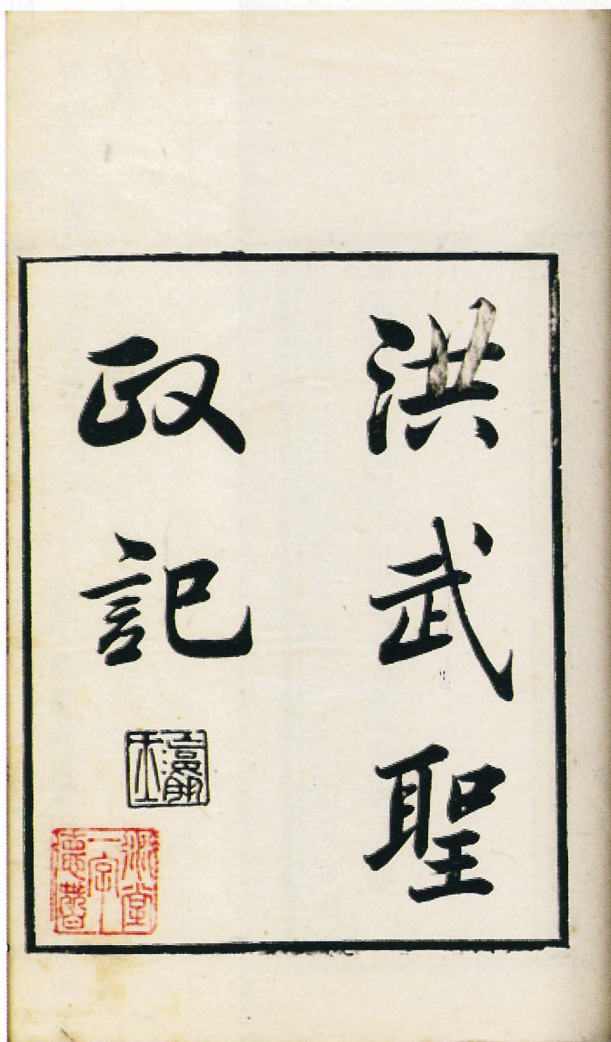 洪武聖
政記